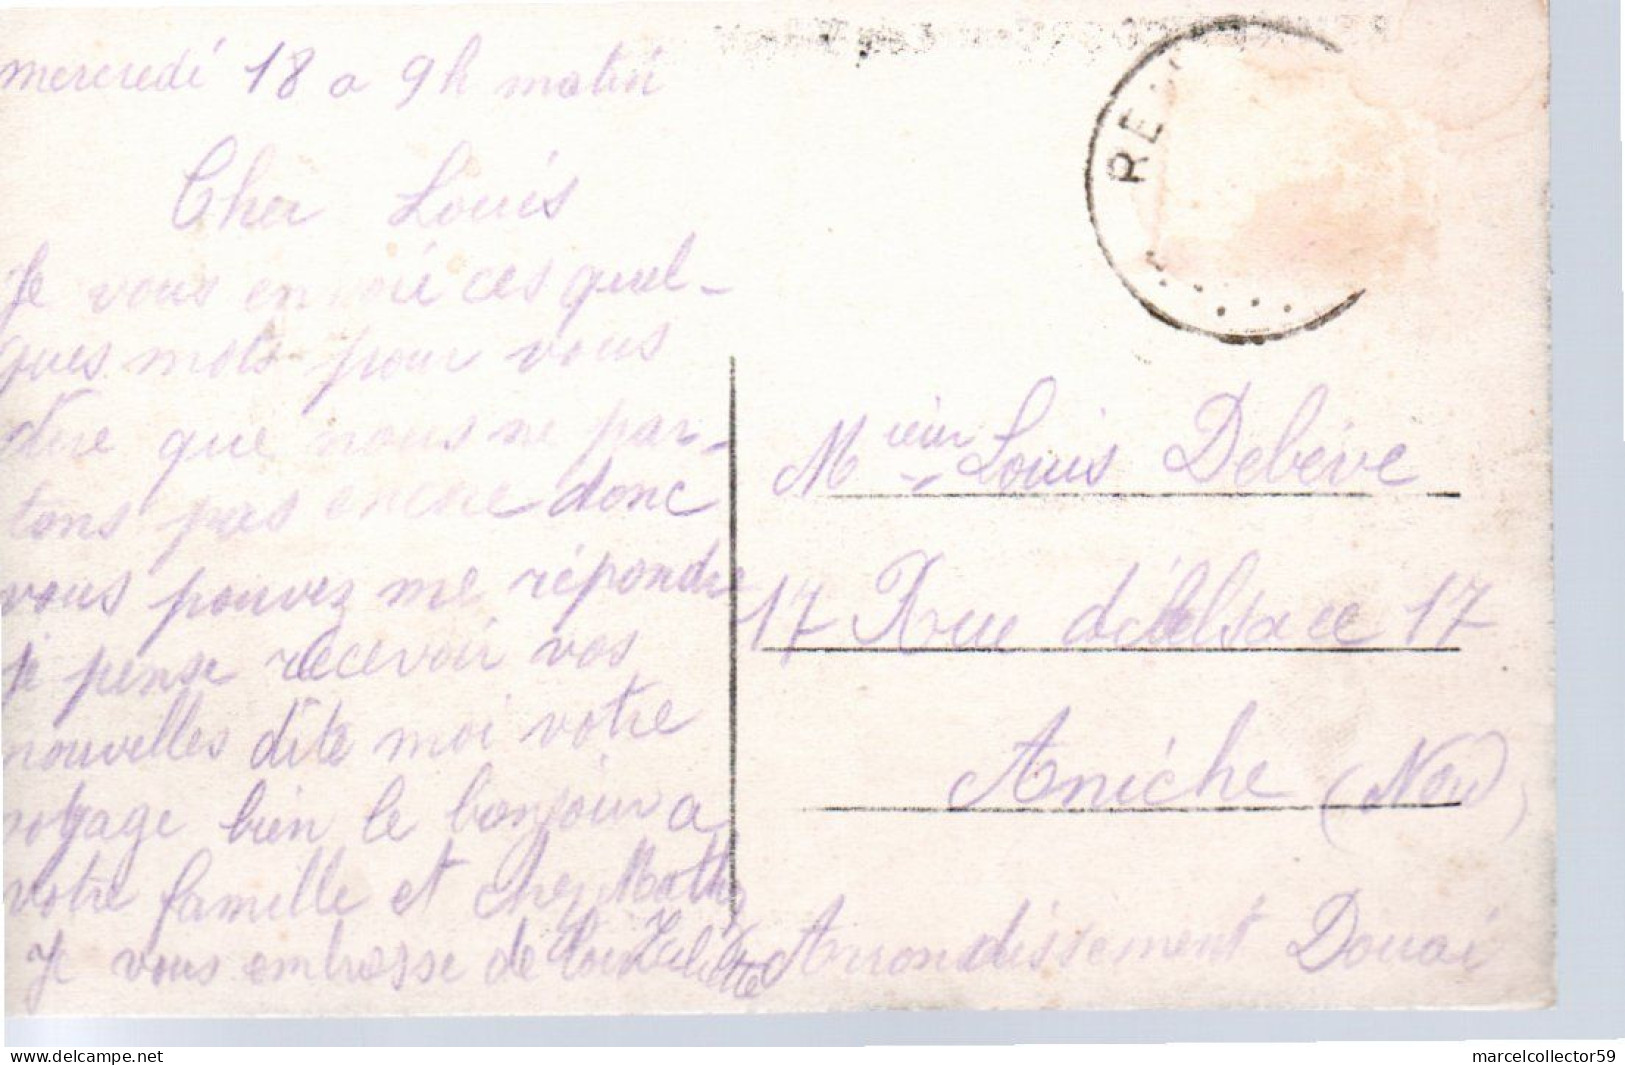 mercredi 18 a 9h matin
Cher Louis
Je vous envoie ces quel-
ques mots pour vous
dire que nous ne par-
tons pas encore donc
vous pouvez me répondre
je pense recevoir vos
nouvelles dite moi votre
voyage bien le bonjour a
votre famille et chez
Je vous embrasse de Juliette
RE
Mieur Louis Debève
17 Rue d'Alsace 17
Aniche (Nord)
Arrondissement Douai
delcampe.net
marcelcollector59